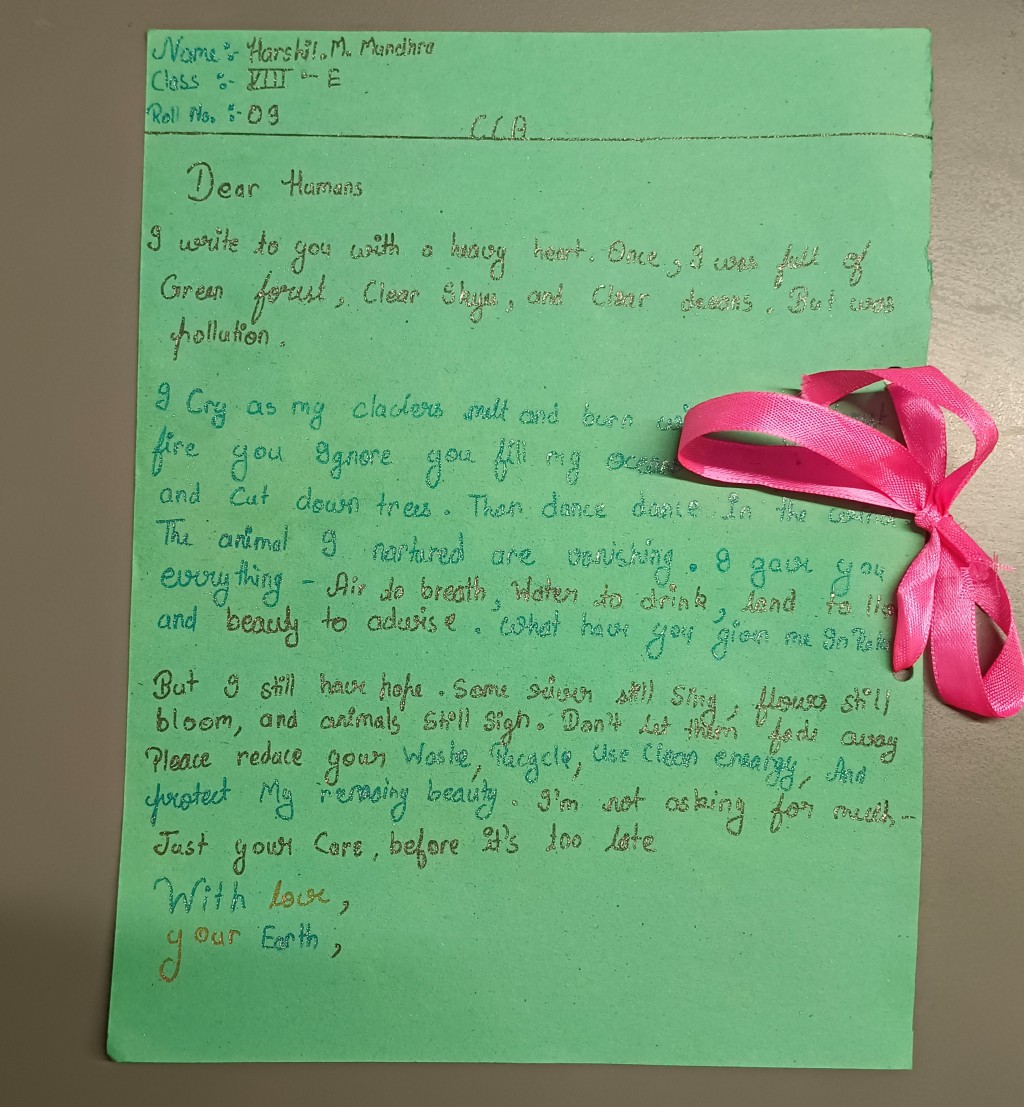 Name :- Harshil. M. Mundhra
Class :- VIII - E
Roll No. :- 09
C/A
Dear Humans
I write to you with a heavy heart. Once, I was full of
Green forust, Clear Skyes, and Clear deeans. But was
pollution.
I Cry as my clacters melt and burn
fire you Ignore you fill my
and Cut down trees. Then dance dance In the
The animal I nartured are vanishing. I gave you
everything - Air to breath, Water to drink, land to
and beauty to adwise. What have you given me In
But I still have hope. Some still Sing, flowers still
bloom, and animals Still Sigh. Don't Let them fade away
Pleace reduce your Washe, Recycle, Use Clean eneargy, And
protect My remaing beauty. I'm not asking for much -
Just your Care, before it's too late
With love,
your Earth,